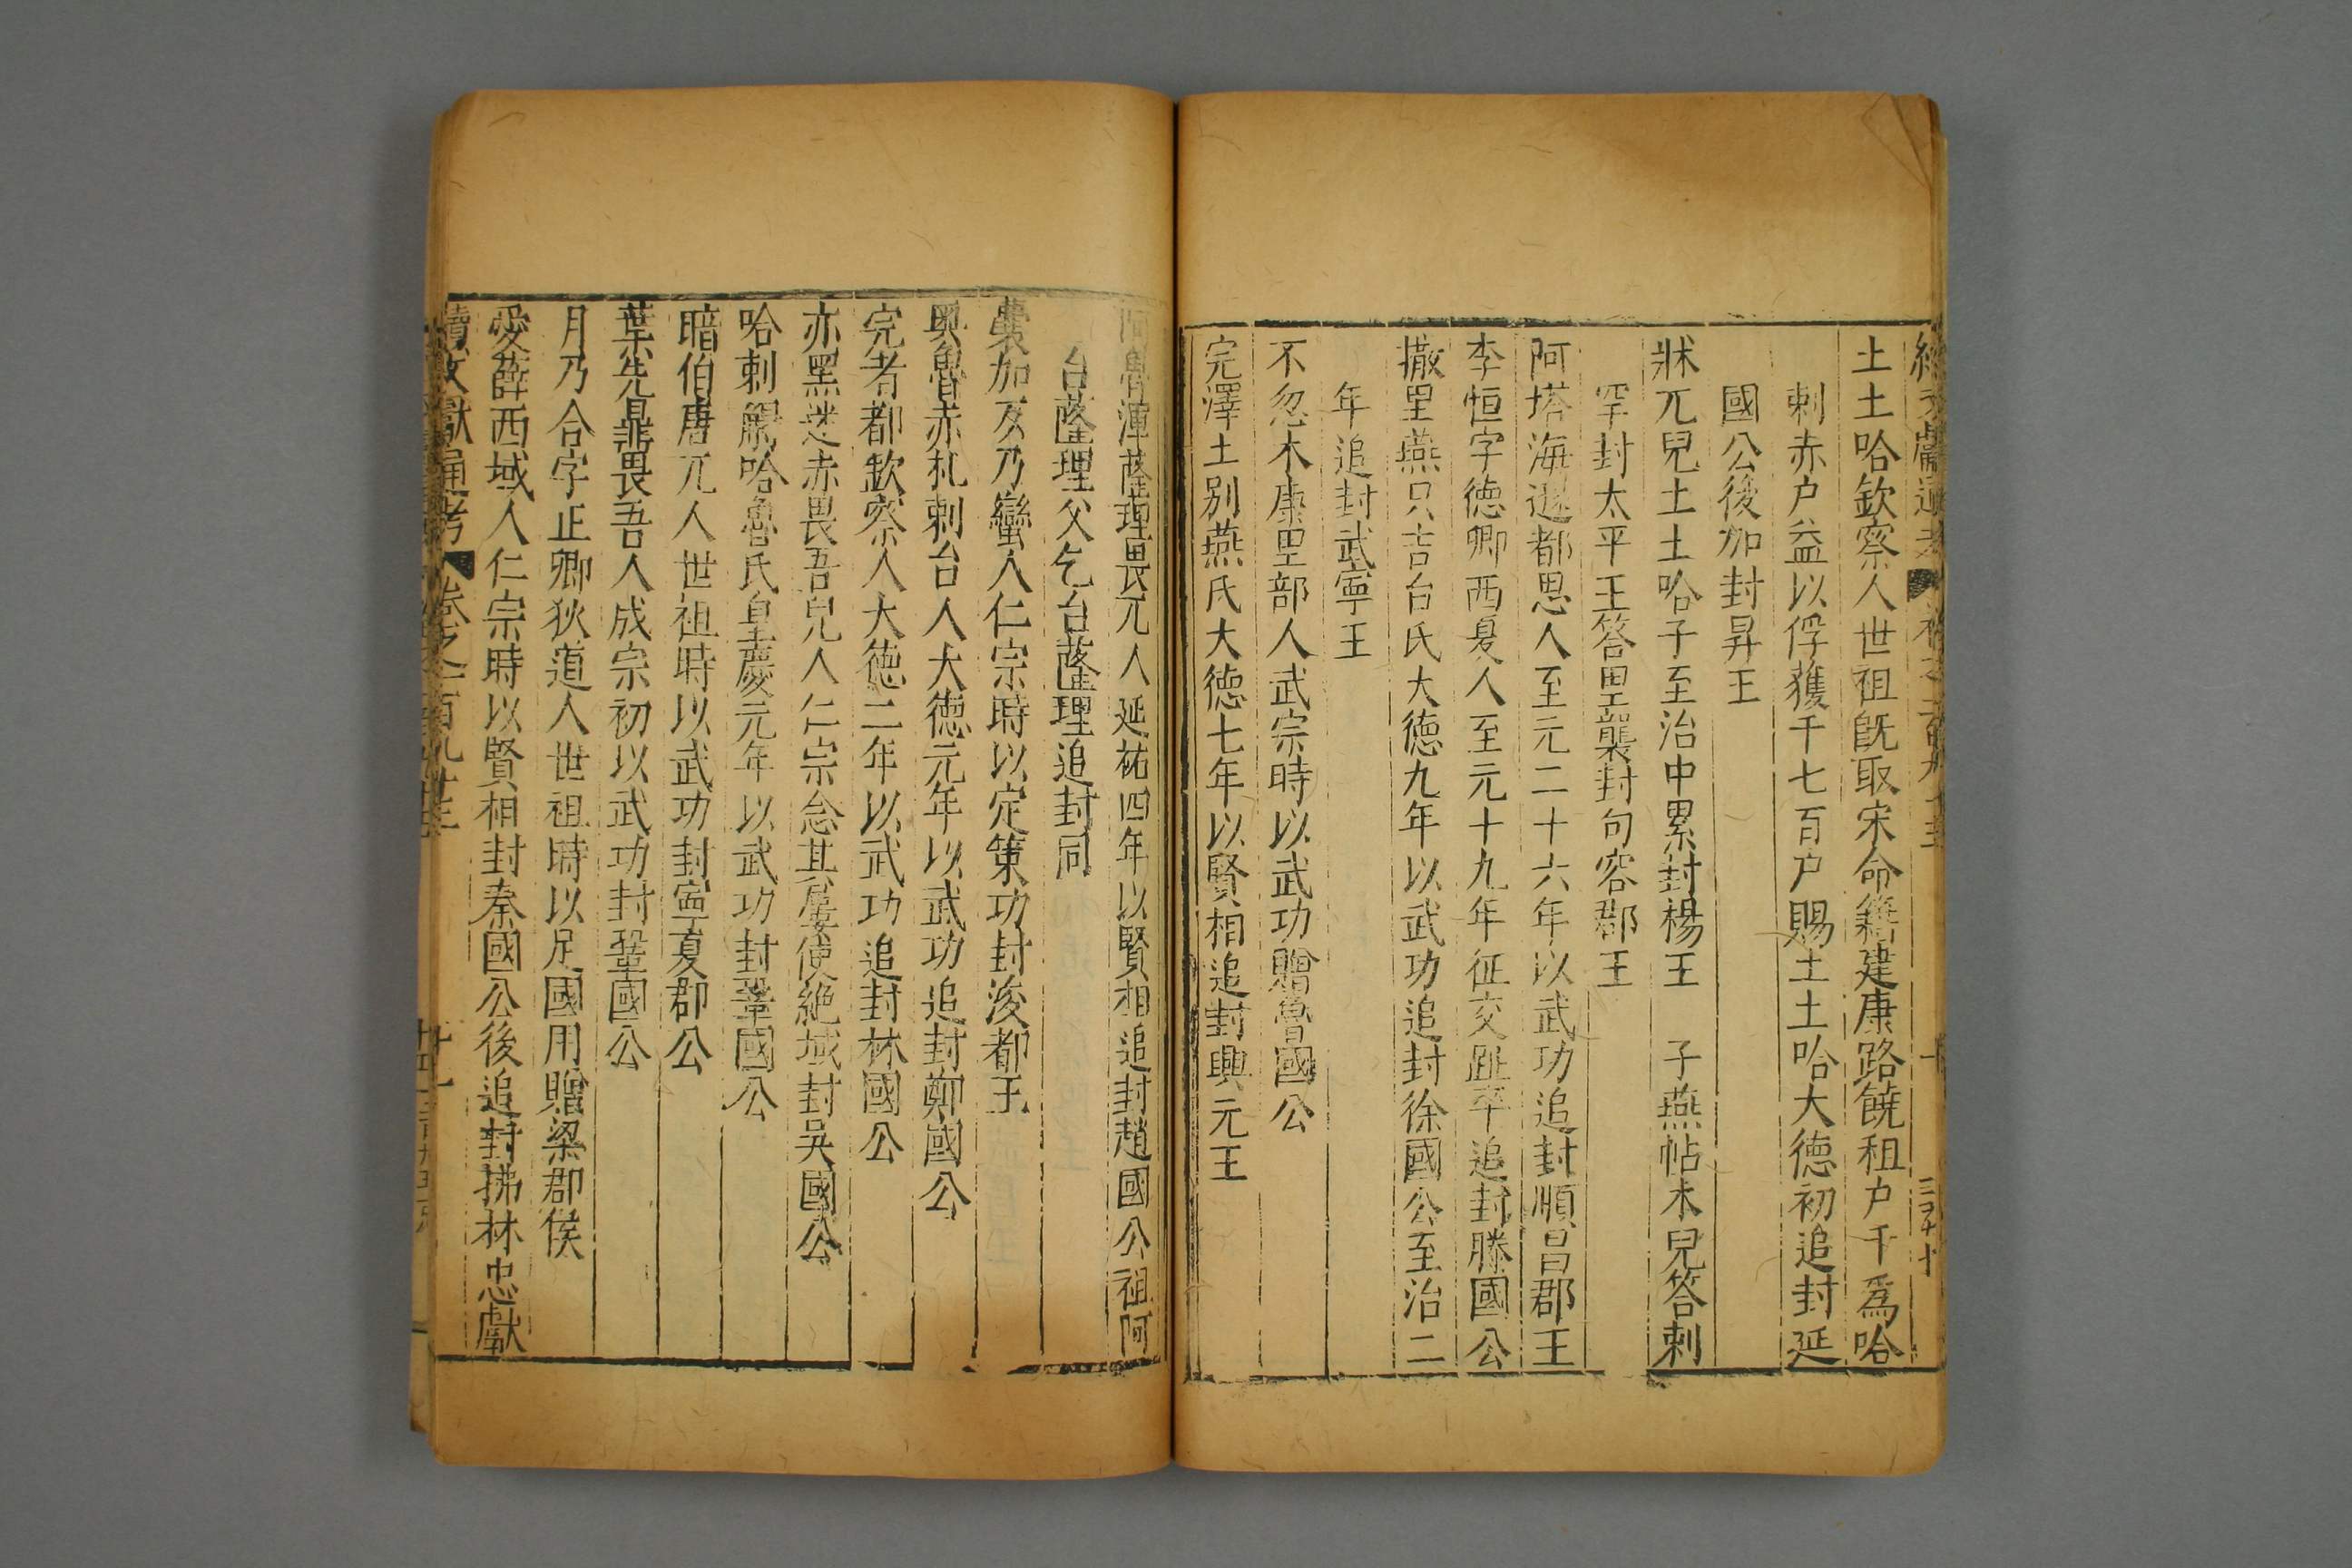 土土哈欽察人世祖旣取宋命籍建康路饒租户千爲哈
剌赤户益以俘獲千七百户賜土土哈大德初追封延
國公後加封昇王
牀兀兒土土哈子至治中累封楊王 子燕帖木兒答剌
罕封太平王答里襲封句容郡王
阿塔海遜都思人至元二十六年以武功追封順昌郡王
李恒字德卿西夏人至元十九年征交趾卒追封滕國公
撒里燕只吉台氏大德九年以武功追封徐國公至治二
年追封武寧王
不忽木康里部人武宗時以武功贈魯國公
完澤土别燕氏大德七年以賢相追封興元王
阿魯渾薩理畏兀人延祐四年以賢相追封趙國公祖阿
台薩理父乞台薩理追封同
囊加歹乃蠻人仁宗時以定策功封浚都王
奥魯赤札剌台人大德元年以武功追封鄭國公
完者都欽察人大德二年以武功追封林國公
亦黑迷赤畏吾兒人仁宗念其屢使絶域封吳國公
哈剌䚟哈魯氏皇慶元年以武功封鞏國公
暗伯唐兀人世祖時以武功封寧夏郡公
葉先鼐畏吾人成宗初以武功封鞏國公
月乃合字正卿狄道人世祖時以足國用贈梁郡侯
愛薛西域人仁宗時以賢相封秦國公後追封拂林忠獻
續文獻通考 卷之一百九十三